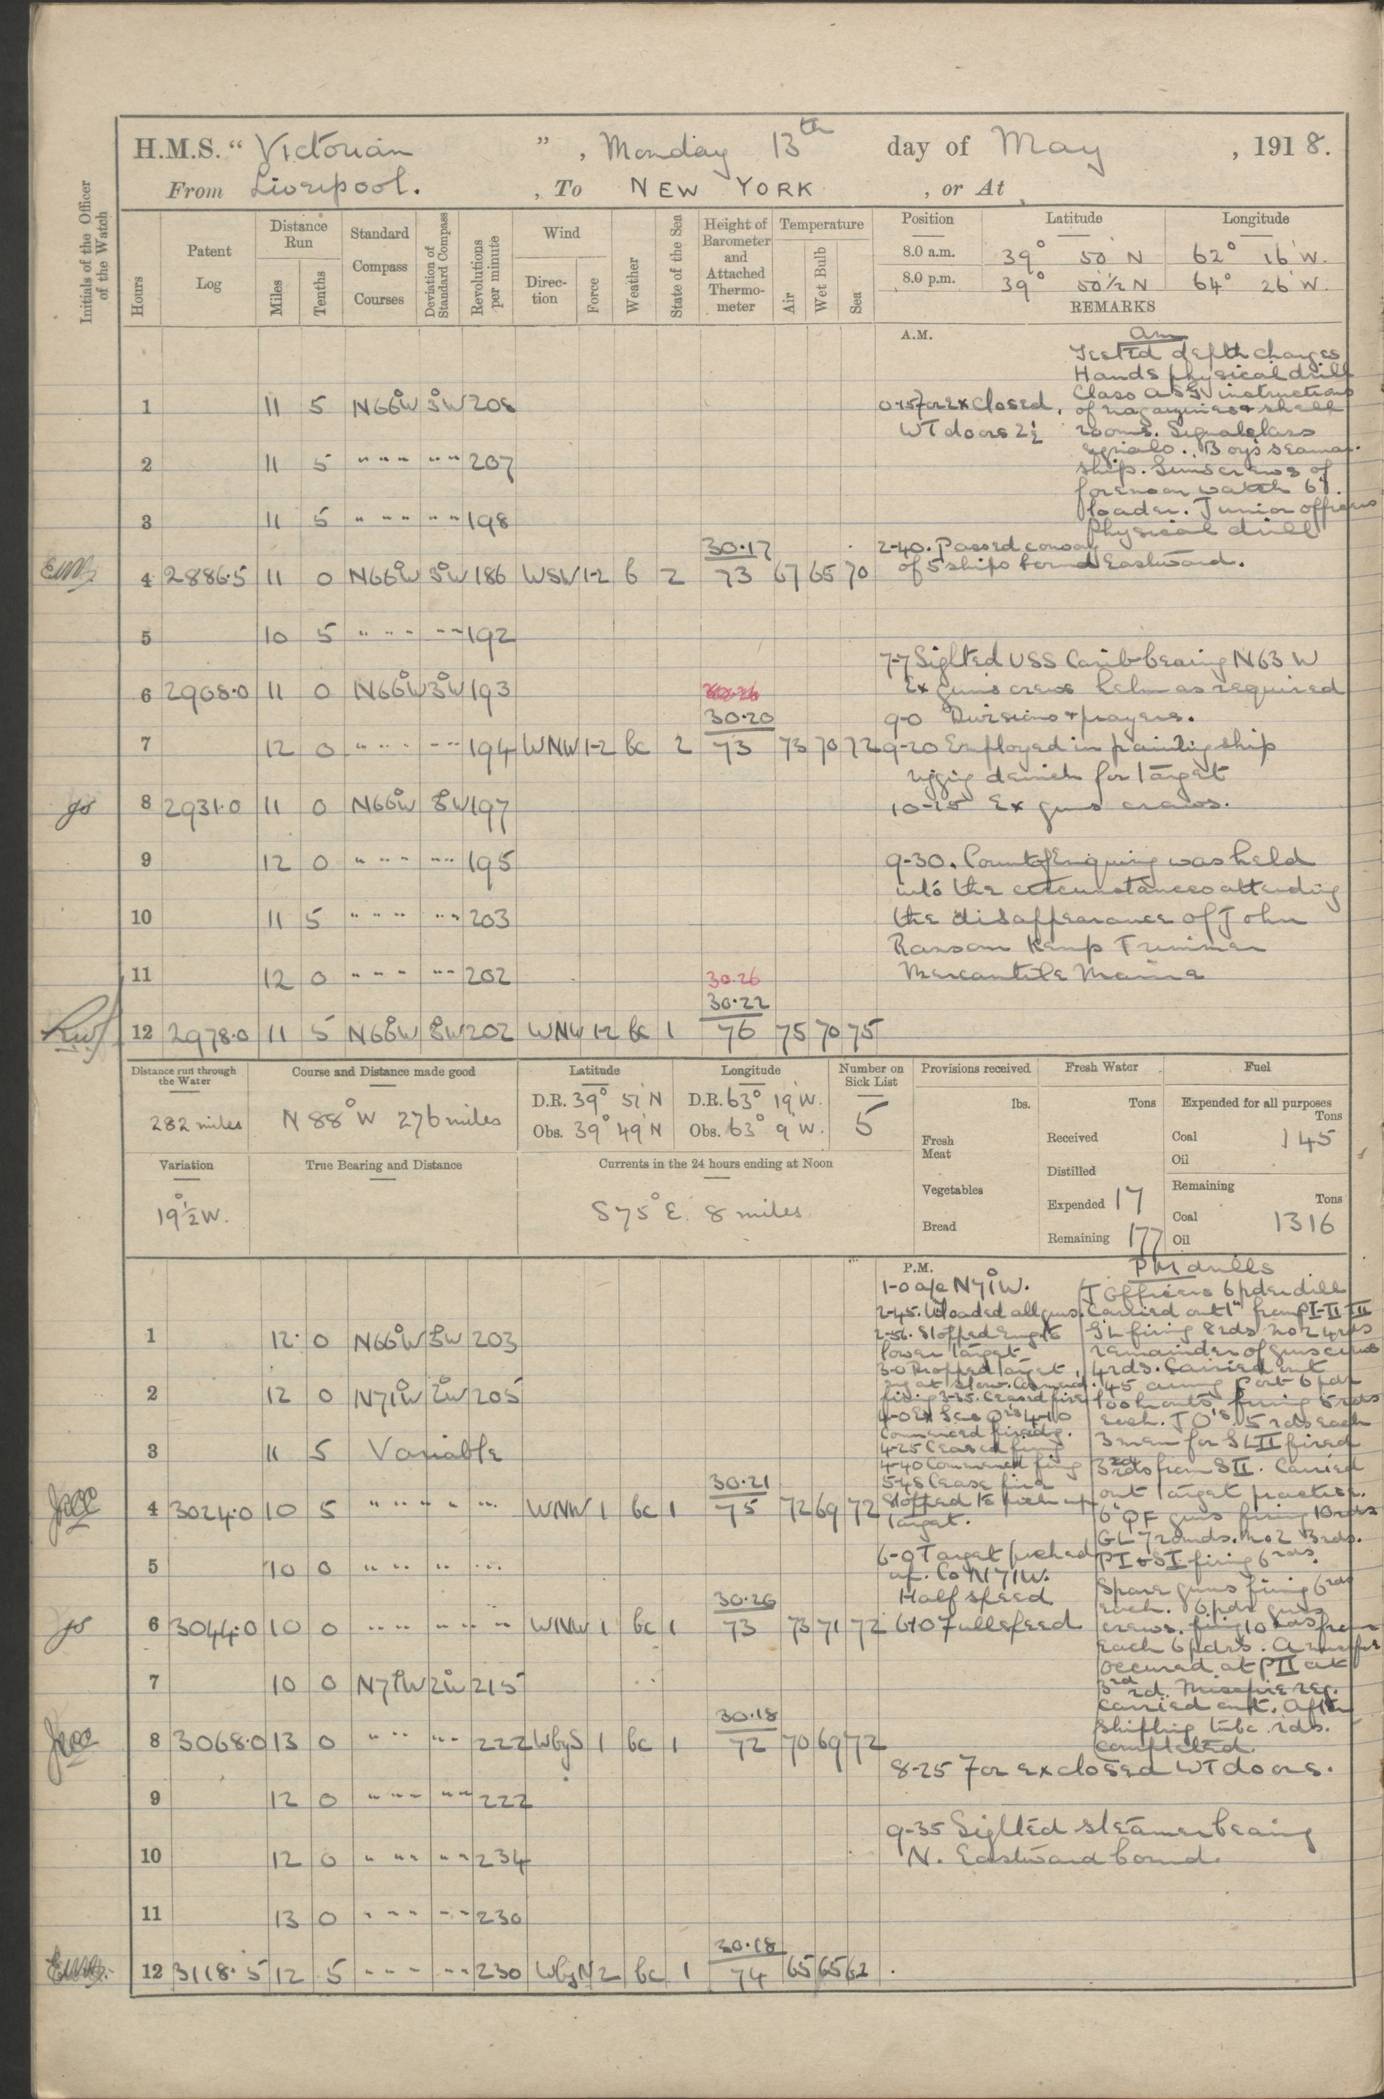 H.M.S. "Victorian", Monday 13th day of May, 1918.
From Liverpool., To NEW YORK, or At
Initials of the Officer of the Watch
Hours
Patent Log
Distance Run
Miles
Tenths
Standard Compass Courses
Deviation of Standard Compass
Revolutions per minute
Wind
Direction
Force
Weather
State of the Sea
Height of Barometer and Attached Thermometer
Temperature
Air
Wet Bulb
Sea
Position Latitude Longitude
8.0 a.m. 39° 50' N 62° 16' W.
8.0 p.m. 39° 50'½ N 64° 26' W.
REMARKS
A.M.
1 11 5 N66°W 3°W 208
2 11 5 " " " " " 207
3 11 5 " " " " " 198
4 2886.5 11 0 N66°W 3°W 186 WSW 1-2 b 2 30.17 73 67 65 70
5 10 5 " " " " " 192
6 2908.0 11 0 N66°W 3°W 193
7 12 0 " " " " " 194 WNW 1-2 bc 2 30.20 73 73 70 72
8 2931.0 11 0 N66°W 3°W 197
9 12 0 " " " " " 195
10 11 5 " " " " " 203
11 12 0 " " " " " 202
30.26
12 2978.0 11 5 N66°W 3°W 202 WNW 1-2 bc 1 30.22 76 75 70 75
am
Tested depth charges
Hands physical drill
Class A SG instructions
of magazines & shell
rooms. Signal class
signals. Boys seaman
ship. Guns crews of
forenoon watch 6"
loader. Junior officers
Physical drill
closed
WT doors 2½
2-40. Passed convoy
of 5 ships bound Eastward.
7-7 Sighted USS Carib bearing N63 W
Ex guns crews helm as required
9-0 Divisions & prayers.
9-20 Employed in painting ship
rigging derrick for Target
10-15 Ex guns crews.
9-30. Court of Enquiry was held
into the circumstances attending
the disappearance of John
Ransom Kemp Trimmer
Mercantile Marine
Distance run through the Water
282 miles
Course and Distance made good
N 88° W 276 miles
Latitude
D.R. 39° 51' N
Obs. 39° 49' N
Longitude
D.R. 63° 19' W.
Obs. 63° 9' W.
Number on Sick List
5
Provisions received
lbs.
Fresh Meat
Vegetables
Bread
Fresh Water
Tons
Received
Distilled
Expended 17
Remaining 177
Fuel
Expended for all purposes
Tons
Coal 145
Oil
Remaining
Tons
Coal 1316
Oil
Variation
19°½ W.
True Bearing and Distance
Currents in the 24 hours ending at Noon
S 75° E. 8 miles
P.M.
1 12 0 N66°W 3°W 203
2 12 0 N71°W 2°W 205
3 11 5 Variable
4 3024.0 10 5 " " " " " WNW 1 bc 1 30.21 75 72 69 72
5 10 0 " " " " "
6 3044.0 10 0 " " " " " WNW 1 bc 1 30.26 73 73 71 72
7 10 0 N71°W 2°W 215
8 3068.0 13 0 " " " " 222 WbyS 1 bc 1 30.18 72 70 69 72
9 12 0 " " " " " 222
10 12 0 " " " " " 234
11 13 0 " " " " " 230
12 3118.5 12 5 " " " " " 230 WbyN 2 bc 1 30.18 74 65 65 62
1-0 a/c N71°W.
2-45. Loaded all guns.
2-56. Stopped Engs to
lower target
3-0 Dropped target
firing 3-35. Ceased fire
Commenced firing.
4-25 Ceased firing
4-40 Commenced firing
5-48 Cease fire
Stopped to pick up
Target.
6-0 Target picked
up. Co N71W.
Half speed
6-10 Full speed
8-25 For ex closed WT doors.
9-35 Sighted steamer bearing
N. Eastward bound.
PM drills
J Officers 6 pder drill
Carried out 1" from PI-II-III
GL firing 8 rds No 2 4 rds
remainder of guns crews
4 rds. Carried out
.45 aiming Port 6 pdr
lookouts firing 5 rds
each. J O's. 5 rds each
3 men for SLII fired
3 rds from SII. Carried
out target practice.
6" QF guns firing 10 rds
GL 7 rounds. No 2 3 rds.
PI & SI firing 6 rds.
Spare guns firing 6 rds
each. 6 pdr guns
crews. firing 10 rds from
each 6 pdrs. A misfire
occured at PII at
3rd rd. Misfire reg.
carried out. After
shifting tube rds.
completed.